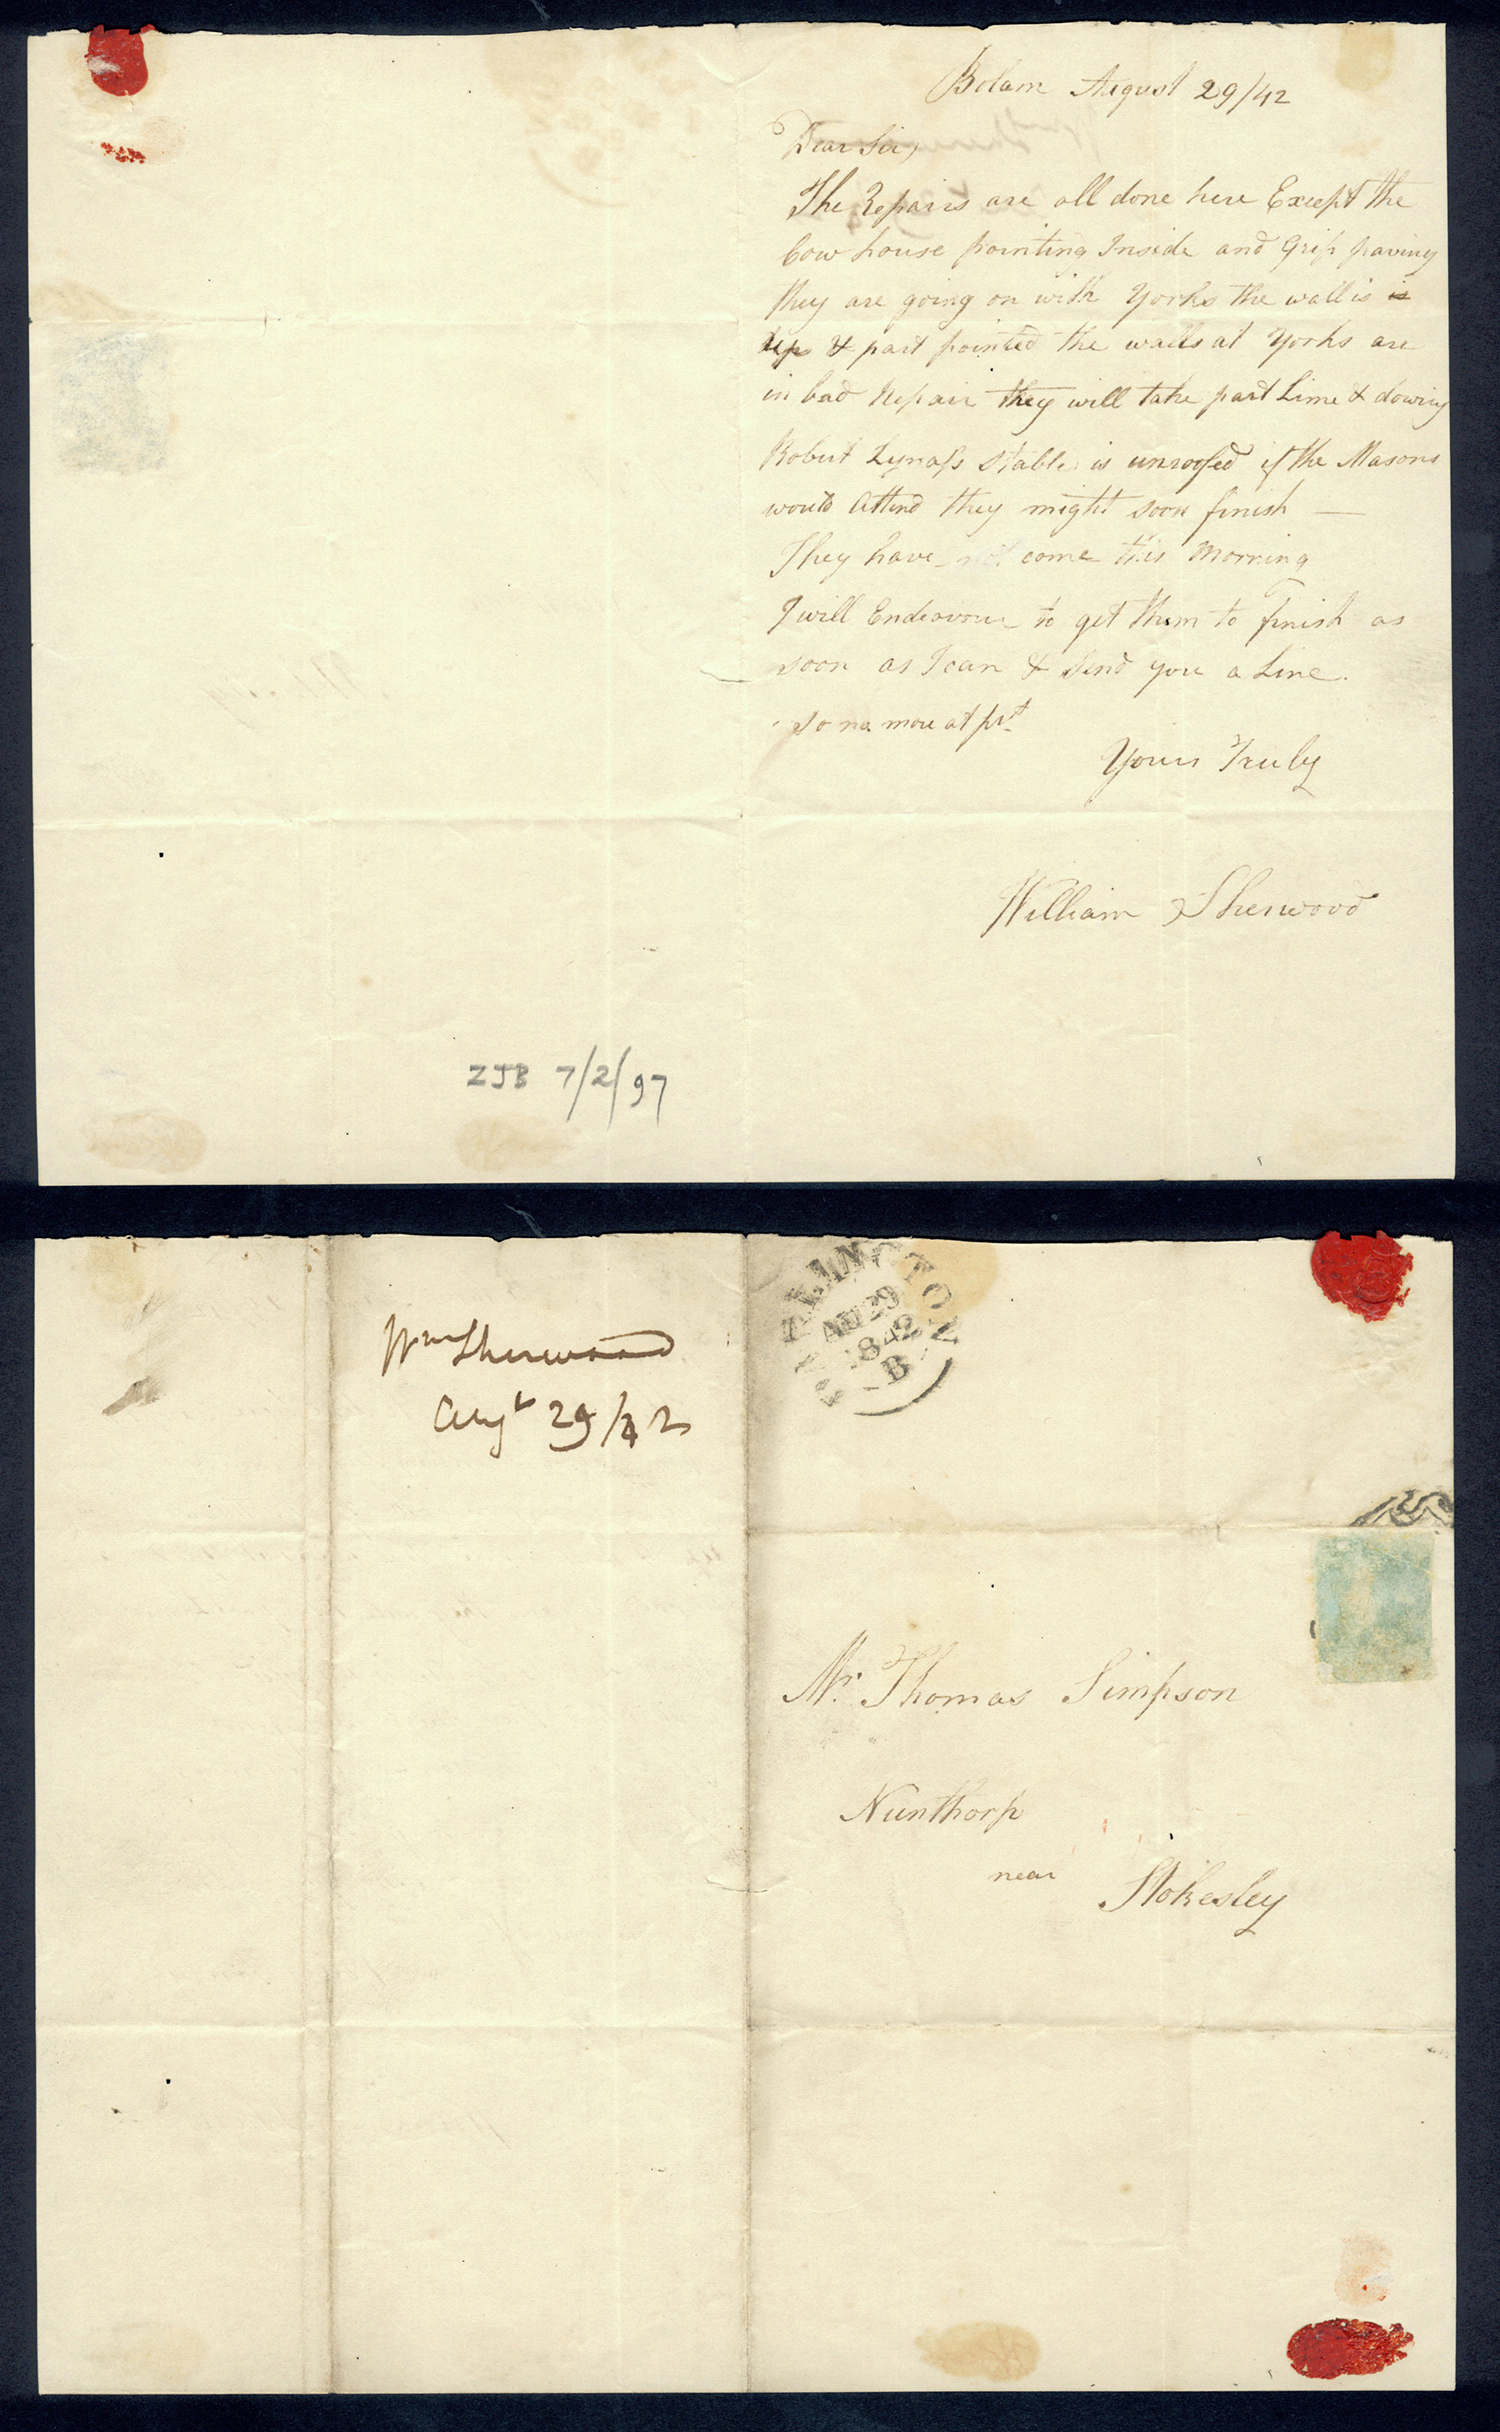 Bolam August 29/42
Dear Sir,
The Repairs are all done here Except the
Cow house pointing Inside and Grip paving
they are going on with Yorks the wall is is
up & part pointed the walls at Yorks are
in bad Repair they will take part Lime & dowing
Robert Lynass Stable is unroofed if the Masons
would Attend they might soon finish —
They have not come this Morning
I will Endeavour to get them to finish as
soon as I can & Send you a Line.
So no more at prt
Yours Truly
William Sherwood
ZJB 7/2/97
Wm Sherwood
Augt 29/42
DARLINGTON
AU 29
1842
B
Mr. Thomas Simpson
Nunthorp
near
Stokesley